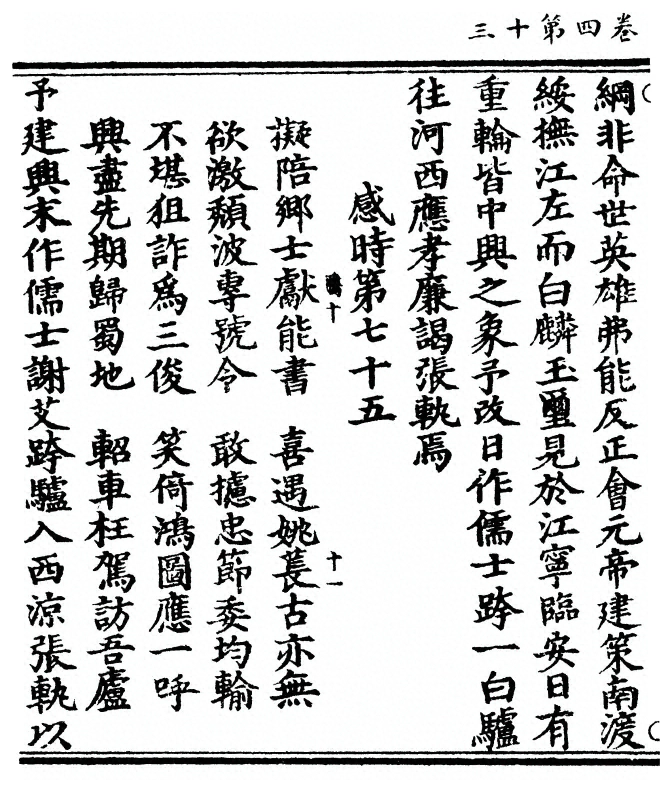 三十第四卷
綱非命世英雄弗能反正會元帝建策南渡
綏撫江左而白麟玉璽見於江寧臨安日有
重輪皆中興之象予改日作儒士跨一白驢
往河西應孝廉謁張軌焉
感時第七十五
擬陪鄉士獻能書　喜遇姚萇古亦無
鳴十
十一
欲激頹波專號令　敢攄忠節委均輸
不堪狙詐爲三俊　笑倚鴻圖應一呼
興盡先期歸蜀地　軺車枉駕訪吾廬
予建興末作儒士謝艾跨驢入西涼張軌以